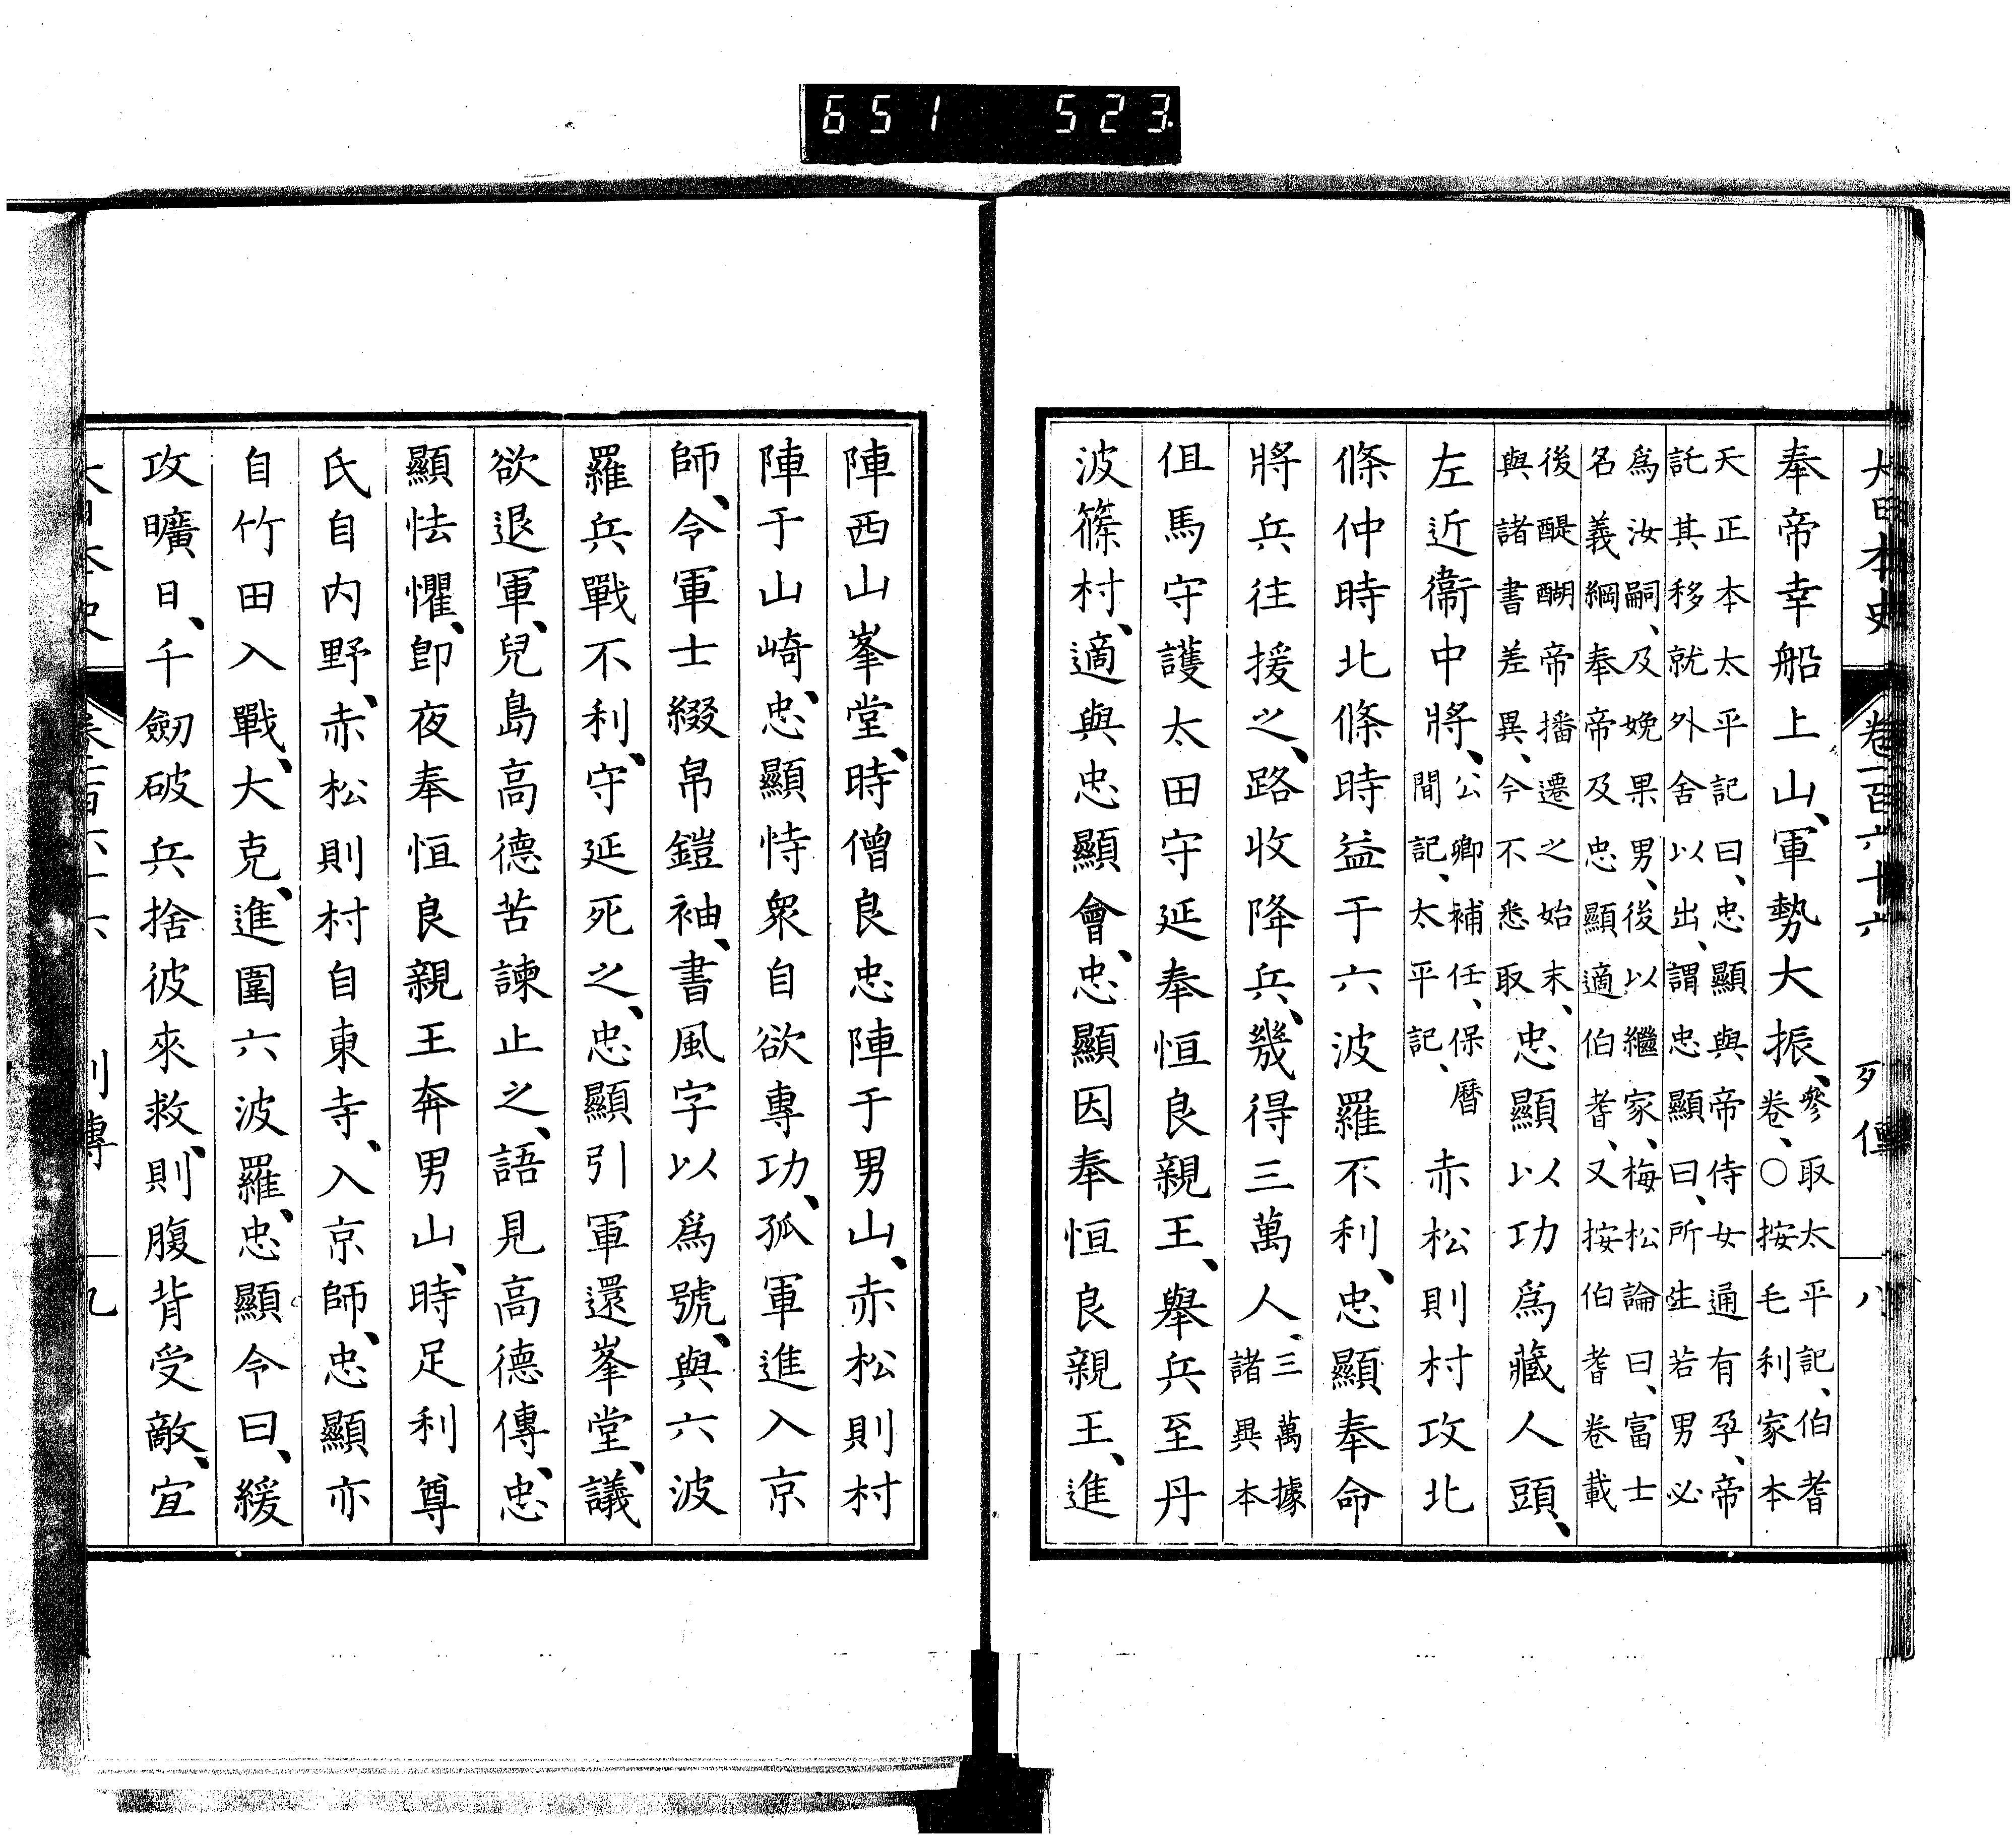 大日本史 卷一百六十六 列傳 八
奉帝幸船上山、軍勢大振、參取太平記、伯耆
卷、○按毛利家本
天正本太平記曰、忠顯與帝侍女通有孕、帝
託其移就外舍以出、謂忠顯曰、所生若男必
爲汝嗣、及娩果男、後以繼家、梅松論曰、富士
名義綱奉帝及忠顯適伯耆、又按伯耆卷載
後醍醐帝播遷之始末、
與諸書差異、今不悉取忠顯以功爲藏人頭、
左近衞中將、公卿補任、保曆
間記、太平記、赤松則村攻北
條仲時北條時益于六波羅不利、忠顯奉命
將兵往援之、路收降兵、幾得三萬人、三萬據
諸異本
但馬守護太田守延奉恒良親王、舉兵至丹
波篠村、適與忠顯會、忠顯因奉恒良親王、進
陣西山峯堂、時僧良忠陣于男山、赤松則村
陣于山崎、忠顯恃衆自欲專功、孤軍進入京
師、令軍士綴帛鎧袖、書風字以爲號、與六波
羅兵戰不利、守延死之、忠顯引軍還峯堂、議
欲退軍、兒島高德苦諫止之、語見高德傳、忠
顯怯懼、卽夜奉恒良親王奔男山、時足利尊
氏自内野、赤松則村自東寺、入京師、忠顯亦
自竹田入戰、大克、進圍六波羅、忠顯令曰、緩
攻曠日、千劒破兵捨彼來救、則腹背受敵、宜
大日本史 卷一百六十六 列傳 九